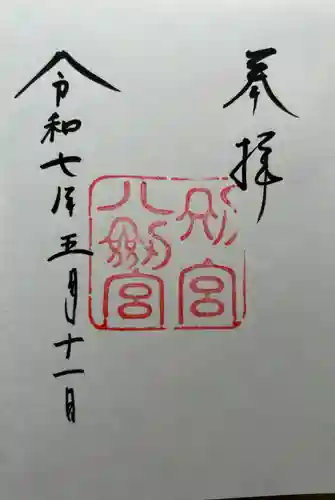 奉拝
八剱宮
令和七年五月十一日